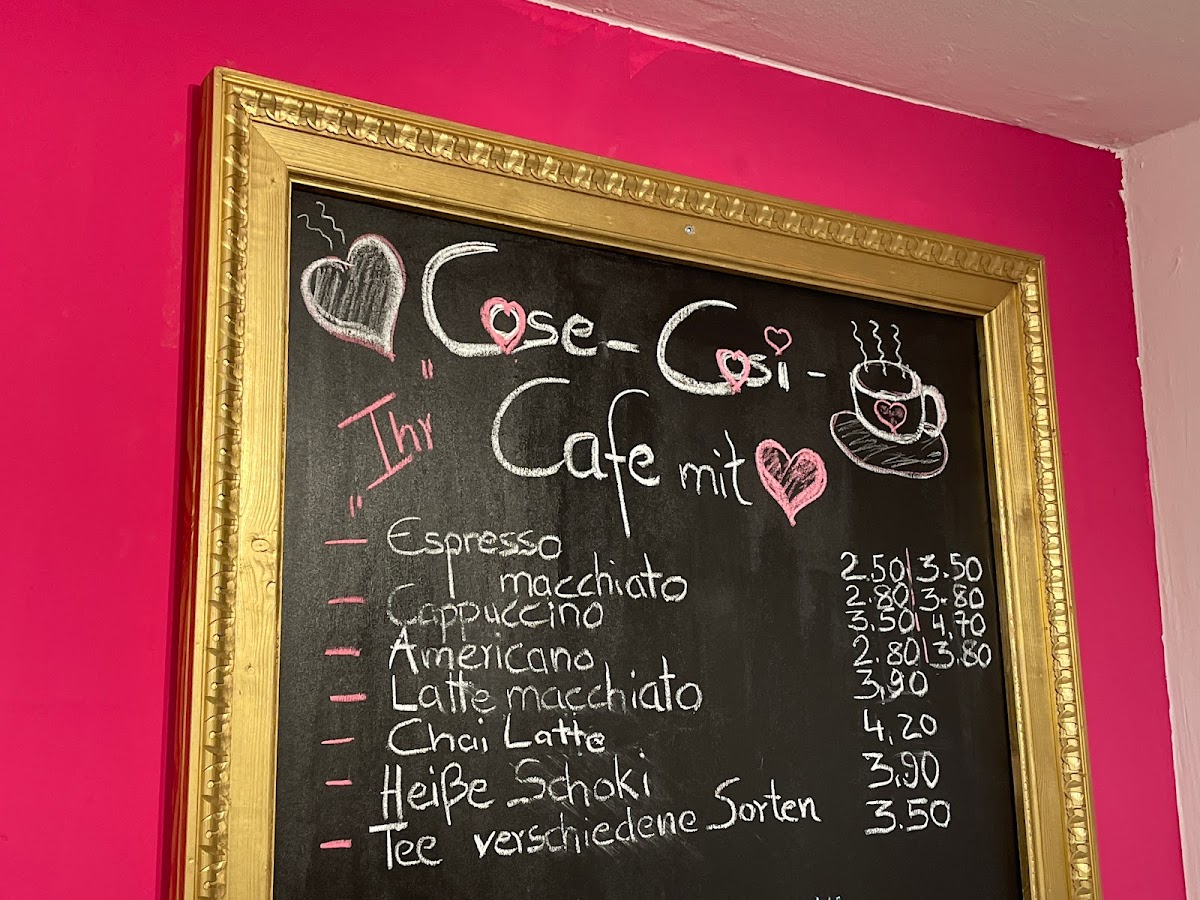 Cose-Cosi-
"Ihr"
Cafe mit
- Espresso 2.50 | 3.50
macchiato 2.80 | 3.80
- Cappuccino 3.50 | 4.70
- Americano 2.80 | 3.80
- Latte macchiato 3,90
- Chai Latte 4,20
- Heiße Schoki 3,90
- Tee verschiedene Sorten 3.50